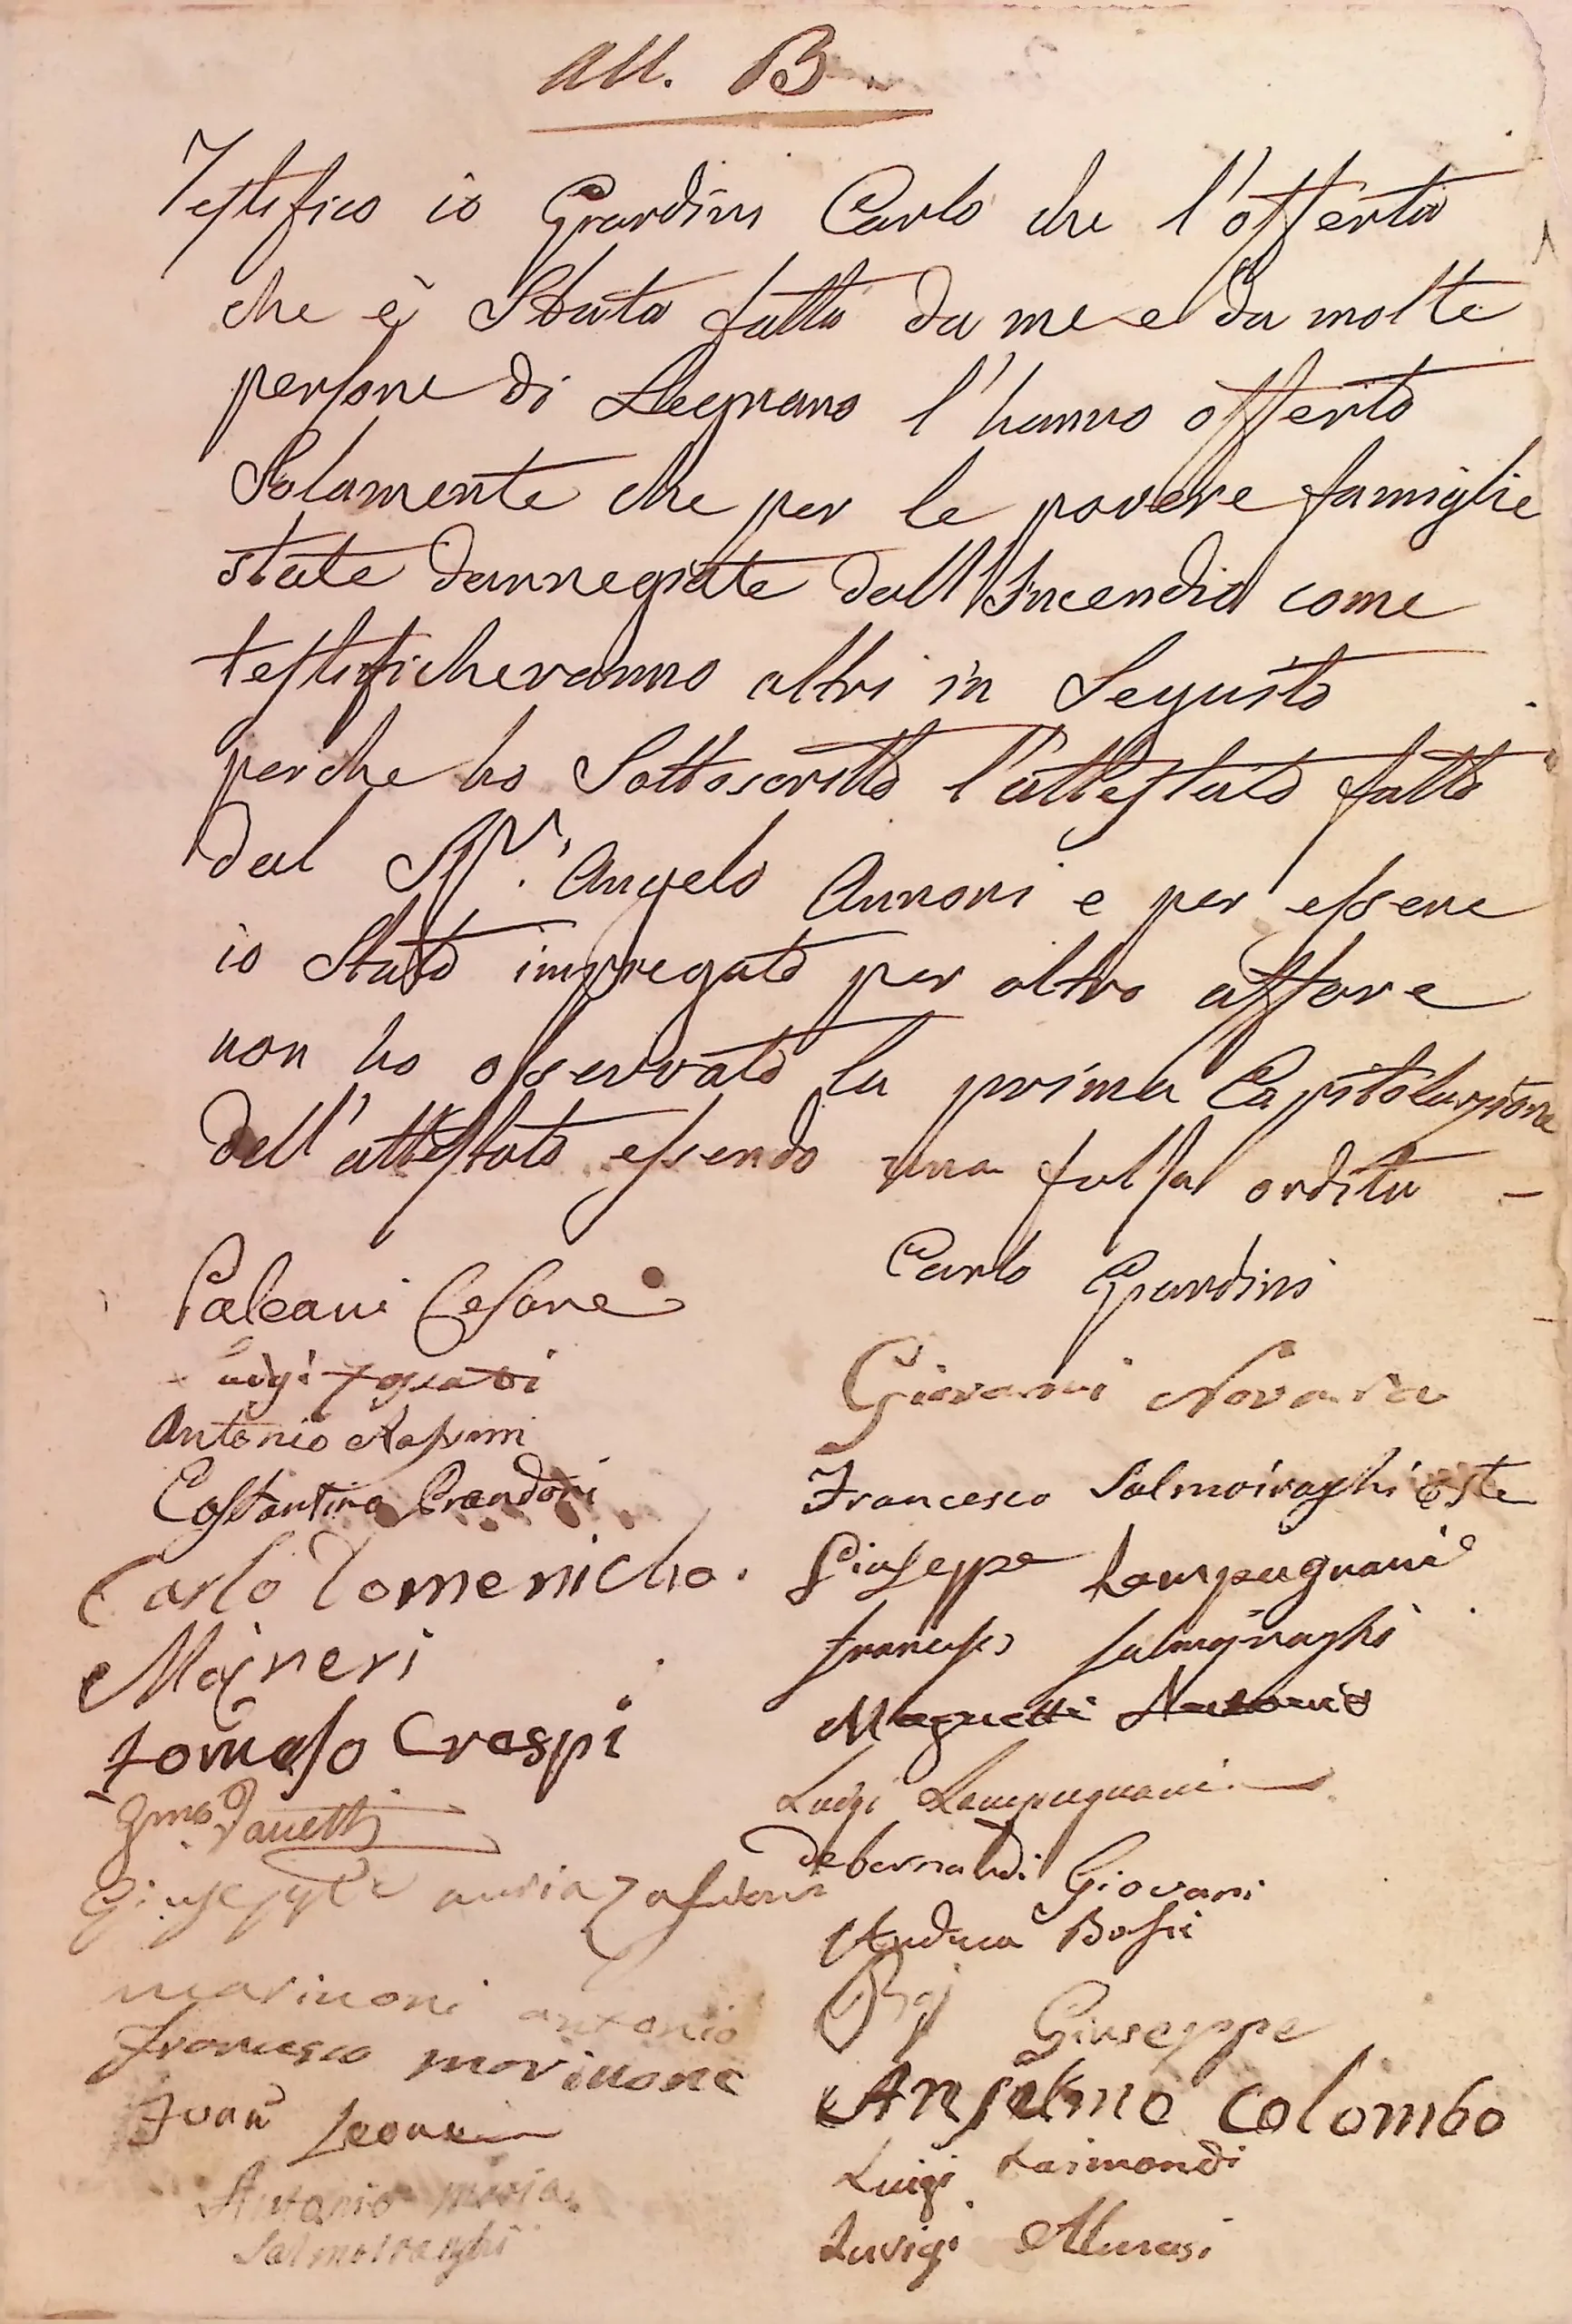 All. B
Testifico io Giardini Carlo che l'offerta
che è Stata fatta da me e da molte
persone di Legnano l'hanno offerto
Solamente che per le povere famiglie
state dannegiate dall'Incendio come
testificheranno altri in Seguito
perche ho Sottoscritto l'attestato fatto
dal Sigr. Angelo Annoni e per essere
io Stato impregato per altro affare
non ho osservato la prima Capitolazione
dell'attestato essendo una falsa ordita –
Carlo Giardini
Paleani Cesare
Giovanni Novara
Luigi Toscani
Antonio Rassini
Francesco Salmoiraghi Oste
Costantino Prandoni
Giuseppe Lampugnani
Carlo Domenicho.
Francesco Salmojraghi
Majneri
Magnetti Antonio
Tomaso Crespi
Luigi Lampugnani
Zanetti
Debernardi Giovani
Giuseppe
Andrea Bossi
marinoni antonio
Giuseppe
Francesco morinone
Anselmo Colombo
Leonar
Luigi Raimondi
Antonio maria
Salmoiraghi
Luvigi Murasi